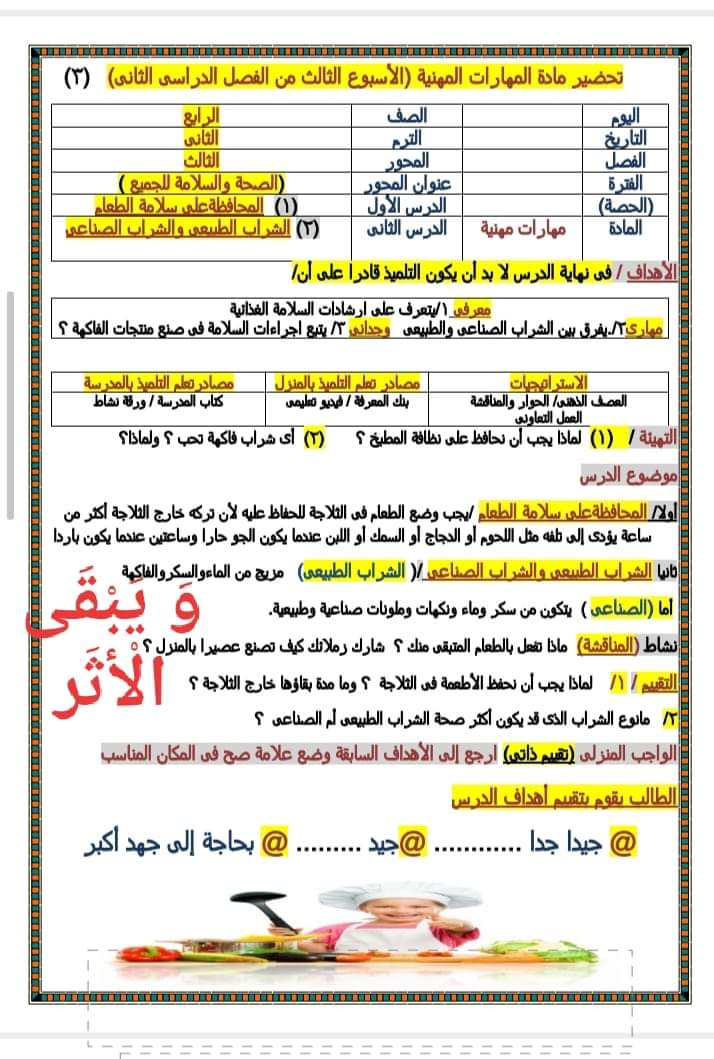 تحضير مادة المهارات المهنية (الأسبوع الثالث من الفصل الدراسى الثانى) (٣)
اليوم الصف الرابع
التاريخ الترم الثانى
الفصل المحور الثالث
الفترة عنوان المحور (الصحة والسلامة للجميع )
(الحصة) الدرس الأول (١) المحافظةعلى سلامة الطعام
المادة مهارات مهنية الدرس الثانى (٢) الشراب الطبيعى والشراب الصناعى
الأهداف / فى نهاية الدرس لا بد أن يكون التلميذ قادرا على أن/
معرفى ١/يتعرف على ارشادات السلامة الغذائية
مهارى٢/.يفرق بين الشراب الصناعى والطبيعى وجدانى ٣/ يتبع اجراءات السلامة فى صنع منتجات الفاكهة ؟
الاستراتيجيات مصادر تعلم التلميذ بالمنزل مصادرتعلم التلميذ بالمدرسة
العصف الذهنى/ الحوار والمناقشة بنك المعرفة / فيديو تعليمى كتاب المدرسة / ورقة نشاط
العمل التعاونى
التهيئة / (١) لماذا يجب أن نحافظ على نظافة المطبخ ؟ (٢) أى شراب فاكهة تحب ؟ ولماذا؟
موضوع الدرس
أولا/ المحافظةعلى سلامة الطعام /يجب وضع الطعام فى الثلاجة للحفاظ عليه لأن تركه خارج الثلاجة أكثر من
ساعة يؤدى إلى تلفه مثل اللحوم أو الدجاج أو السمك أو اللبن عندما يكون الجو حارا وساعتين عندما يكون باردا
ثانيا الشراب الطبيعى والشراب الصناعى /( الشراب الطبيعى) مزيج من الماءوالسكروالفاكهة
أما (الصناعى ) يتكون من سكر وماء ونكهات وملونات صناعية وطبيعية.
نشاط (المناقشة) ماذا تفعل بالطعام المتبقى منك ؟ شارك زملائك كيف تصنع عصيرا بالمنزل ؟
وَ يَبْقَى
الْأَثَر
التقييم / ١/ لماذا يجب أن نحفظ الأطعمة فى الثلاجة ؟ وما مدة بقاؤها خارج الثلاجة ؟
٢/ مانوع الشراب الذى قد يكون أكثر صحة الشراب الطبيعى أم الصناعى ؟
الواجب المنزلى (تقييم ذاتى) ارجع إلى الأهداف السابقة وضع علامة صح فى المكان المناسب
الطالب يقوم بتقييم أهداف الدرس
@ جيدا جدا ............ @جيد ......... @ بحاجة إلى جهد أكبر